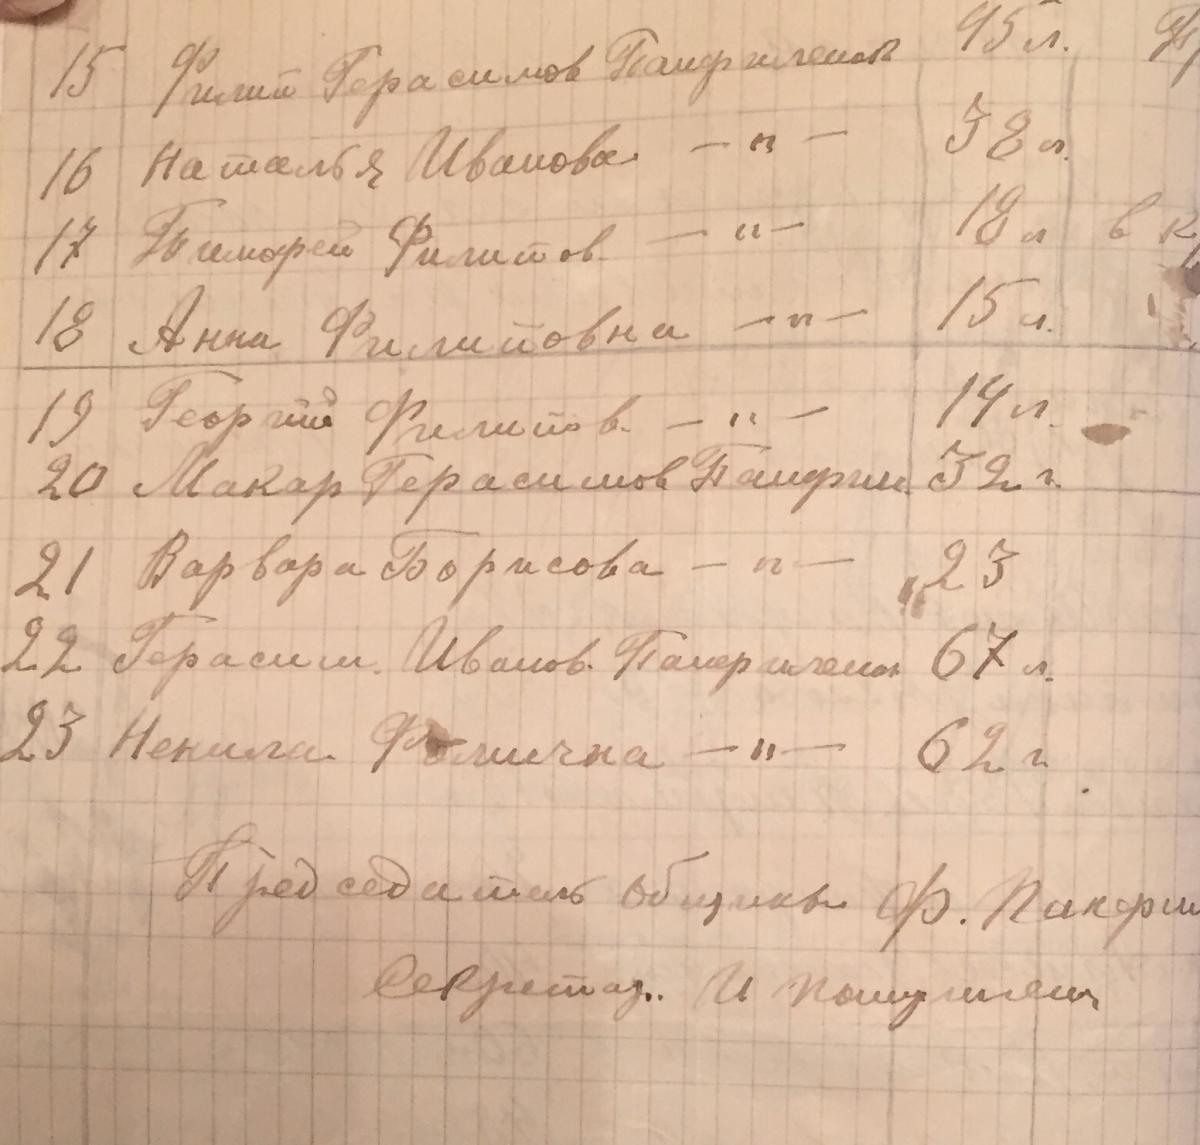 15 Филип Герасимов Панфиленок 45 л.
16 Наталья Иванова — " — 38 л.
17 Тимофей Филипов — " — 18 л в к
18 Анна Филиповна — " — 15 л.
19 Георгий Филипов — " — 14 л.
20 Макар Герасимов Панфил 32 г.
21 Варвара Борисова — " — 23
22 Герасим Иванов Панфиленок 67 л.
23 Ненила Фомична — " — 62 г.
Председатель общины Ф. Панфил
Секретар. И